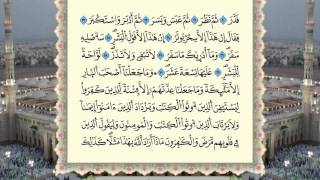 قَدَّرَ ثُمَّ نَظَرَ ثُمَّ عَبَسَ وَبَسَرَ ثُمَّ أَدْبَرَ وَٱسْتَكْبَرَ
فَقَالَ إِنْ هَٰذَآ إِلَّا سِحْرٌ يُؤْثَرُ إِنْ هَٰذَآ إِلَّا قَوْلُ ٱلْبَشَرِ سَأُصْلِيهِ
سَقَرَ وَمَآ أَدْرَىٰكَ مَا سَقَرُ لَا تُبْقِى وَلَا تَذَرُ لَوَّاحَةٌ
لِّلْبَشَرِ عَلَيْهَا تِسْعَةَ عَشَرَ وَمَا جَعَلْنَآ أَصْحَٰبَ ٱلنَّارِ
إِلَّا مَلَٰٓئِكَةً وَمَا جَعَلْنَا عِدَّتَهُمْ إِلَّا فِتْنَةً لِّلَّذِينَ كَفَرُوا۟
لِيَسْتَيْقِنَ ٱلَّذِينَ أُوتُوا۟ ٱلْكِتَٰبَ وَيَزْدَادَ ٱلَّذِينَ ءَامَنُوٓا۟ إِيمَٰنًا
وَلَا يَرْتَابَ ٱلَّذِينَ أُوتُوا۟ ٱلْكِتَٰبَ وَٱلْمُؤْمِنُونَ وَلِيَقُولَ ٱلَّذِينَ
فِى قُلُوبِهِم مَّرَضٌ وَٱلْكَٰفِرُونَ مَاذَآ أَرَادَ ٱللَّهُ بِهَٰذَا مَثَلًا كَذَٰلِكَ